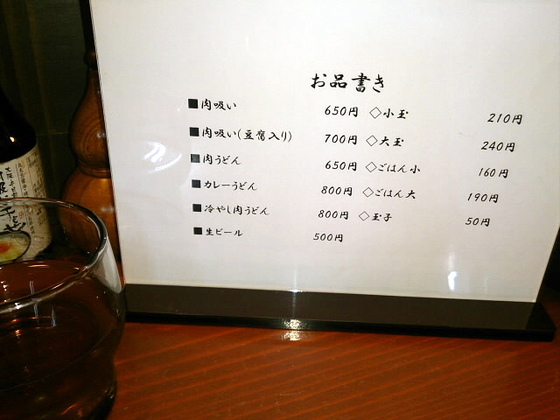 お品書き
■肉吸い 650円 ◇小玉 210円
■肉吸い(豆腐入り) 700円 ◇大玉 240円
■肉うどん 650円 ◇ごはん小 160円
■カレーうどん 800円 ◇ごはん大 190円
■冷やし肉うどん 800円 ◇玉子 50円
■生ビール 500円